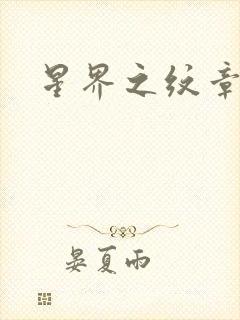 星界之纹章
晏夏雨